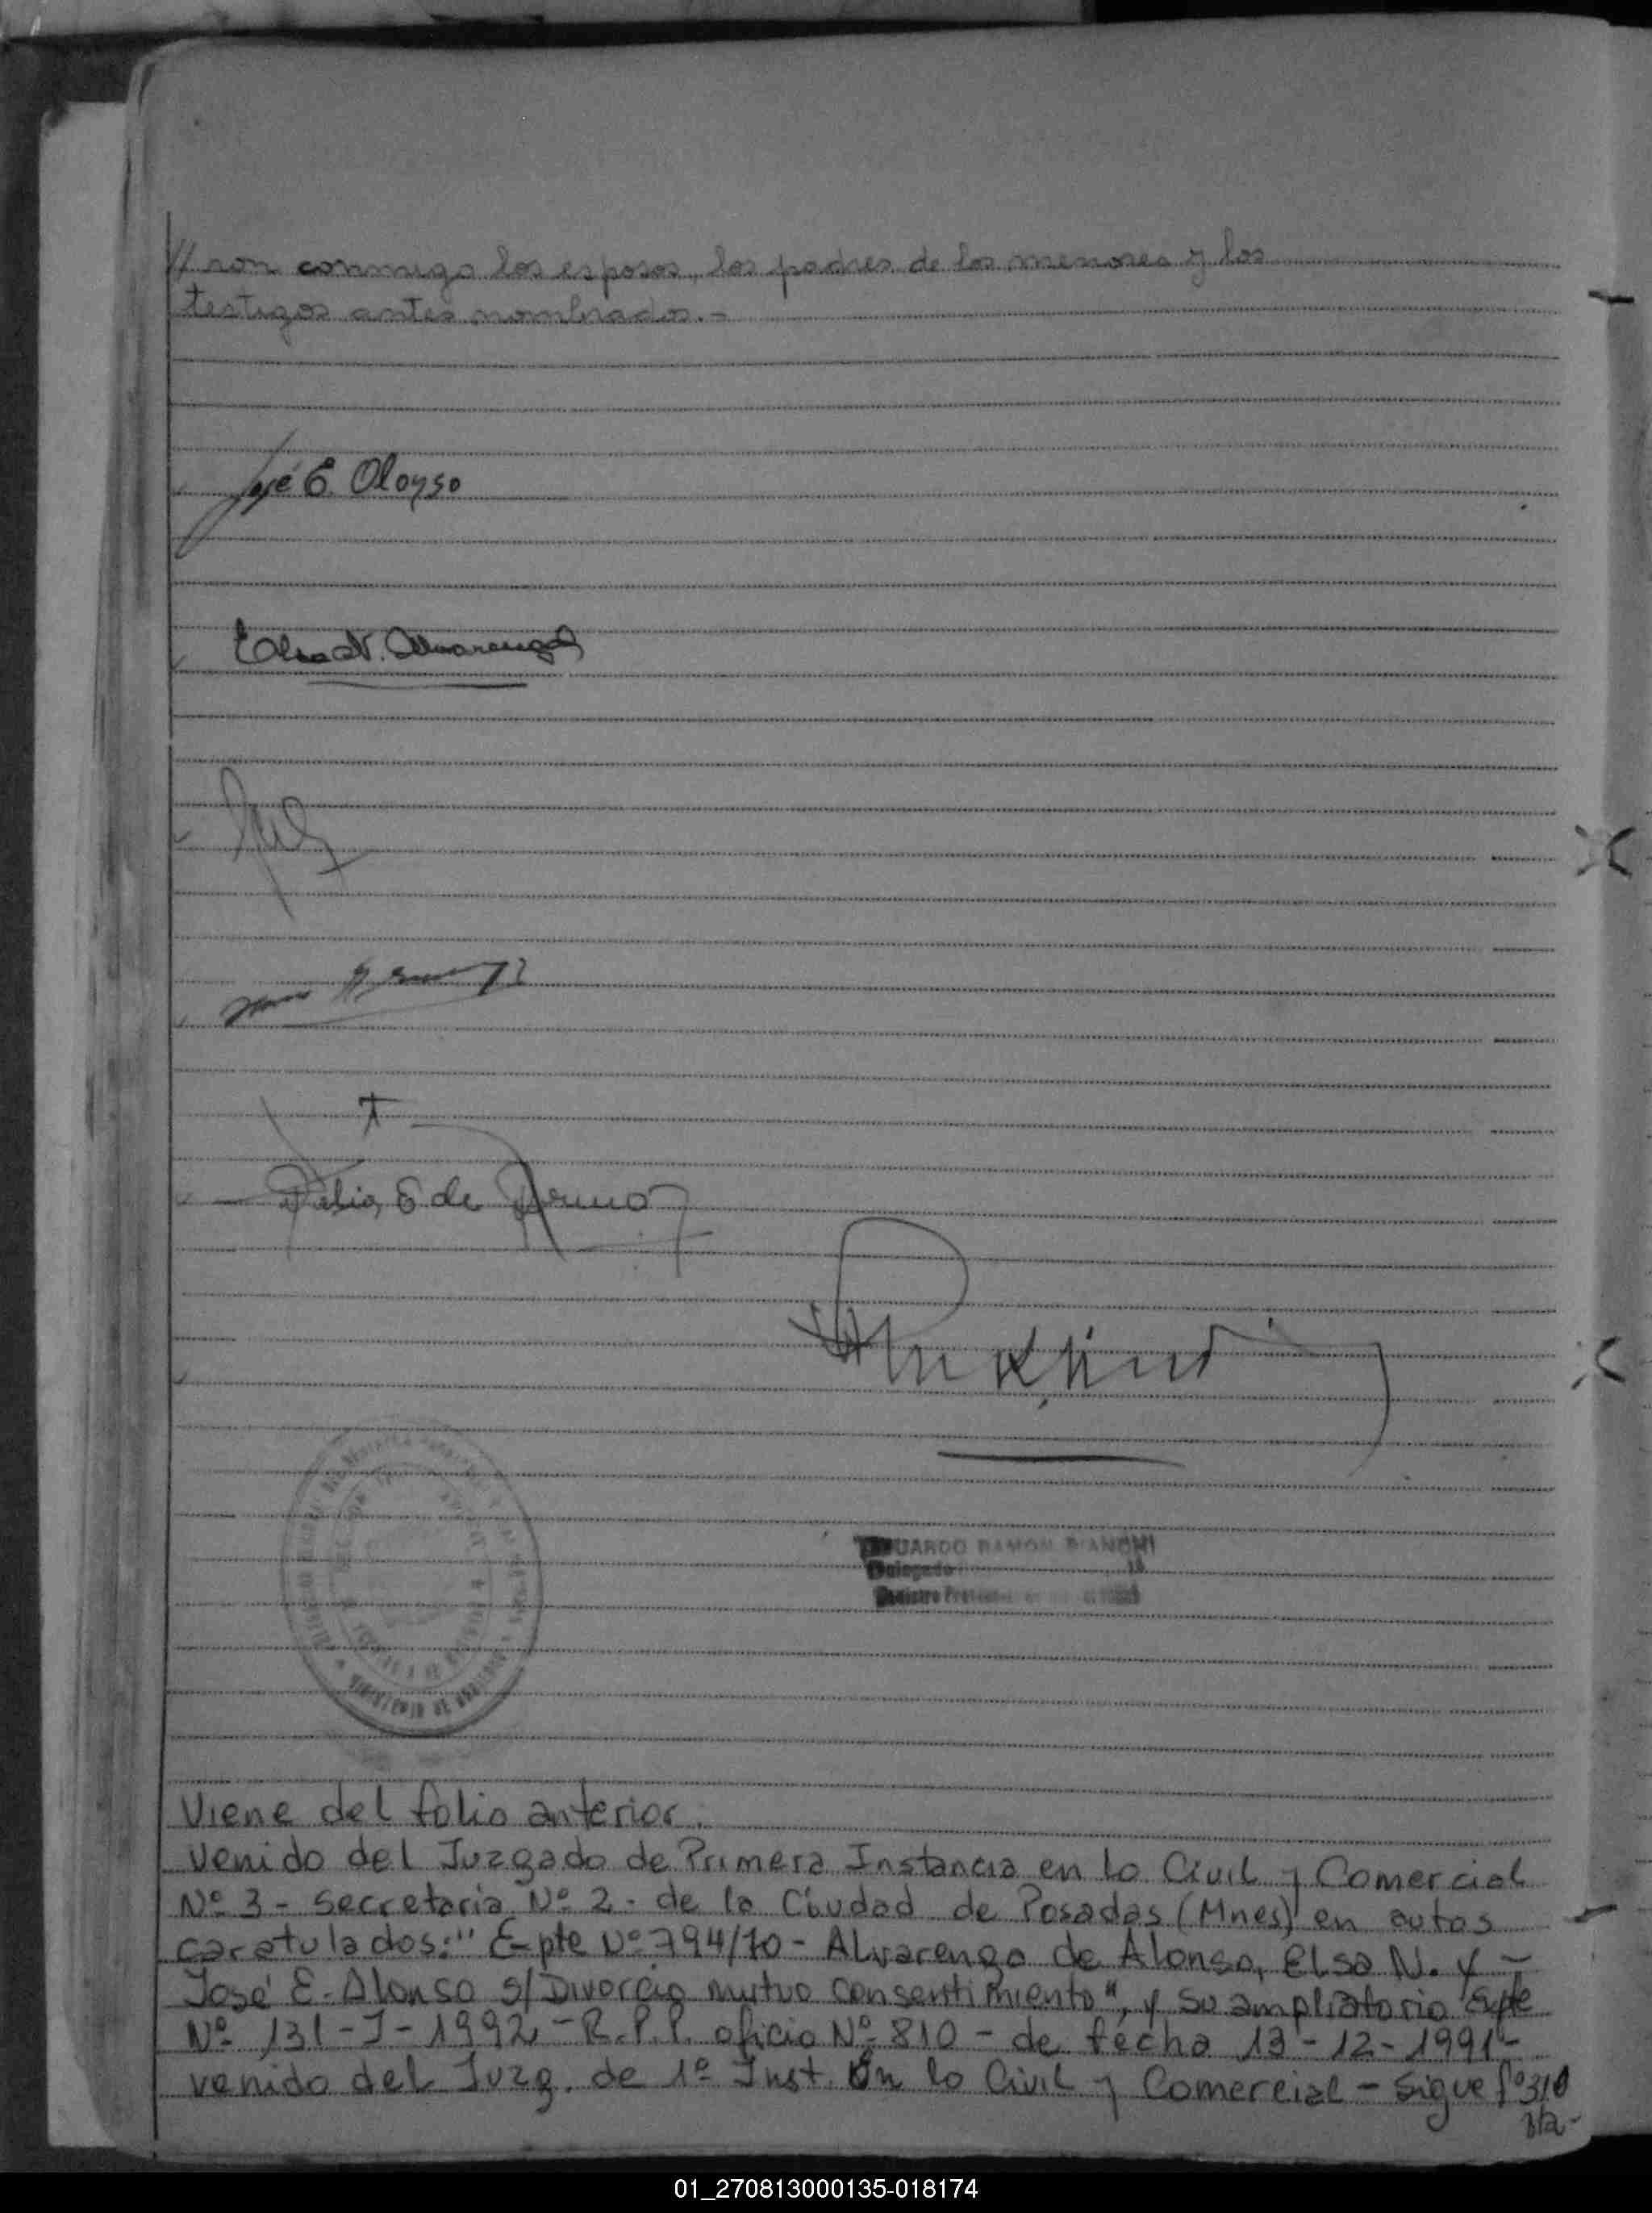 // ron conmigo los esposos, los padres de los menores y los
testigos antes nombrados.-
José E. Alonso
Elsa N. Alvarenga
Delia E de
Viene del folio anterior.
Venido del Juzgado de Primera Instancia en lo Civil y Comercial
Nº 3 - Secretaria Nº 2 - de la Ciudad de Posadas (Mnes) en autos
caratulados: "Expte Nº 794/70 - Alvarenga de Alonso, Elsa N. y -
José E. Alonso s/Divorcio mutuo consentimiento", y su ampliatorio Expte
Nº 131-J-1992 - R.P.P. oficio Nº 810 - de fecha 13-12-1991-
venido del Juzg. de 1º Inst. En lo Civil y Comercial - Sigue fº 310
vta-
01_270813000135-018174